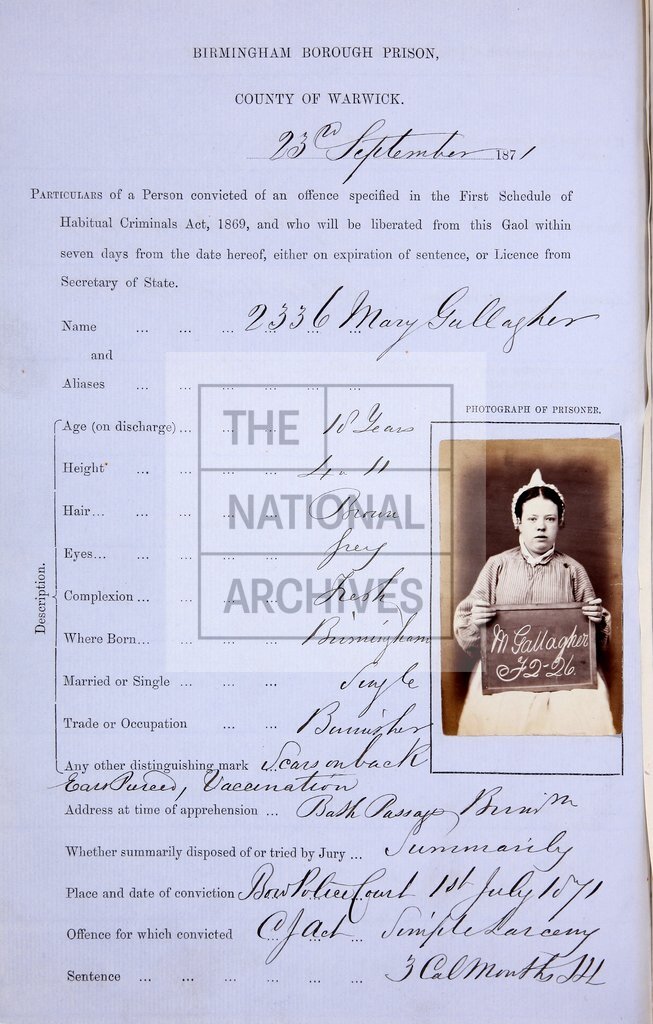 BIRMINGHAM BOROUGH PRISON,
COUNTY OF WARWICK.
23rd September 1871
PARTICULARS of a Person convicted of an offence specified in the First Schedule of
Habitual Criminals Act, 1869, and who will be liberated from this Gaol within
seven days from the date hereof, either on expiration of sentence, or Licence from
Secretary of State.
Name ... ... ... 2336 Mary Gallagher
and
Aliases ... ... ... ... ...
PHOTOGRAPH OF PRISONER.
Description.
Age (on discharge) ... ... ... 18 Years
Height ... ... ... ... 4 " 11
Hair ... ... ... ... Brown
Eyes ... ... ... ... Grey
Complexion ... ... ... ... Fresh
Where Born ... ... ... ... Birmingham
Married or Single ... ... ... Single
Trade or Occupation ... ... Burnisher
Any other distinguishing mark ... Scars on back
Ears Pierced, Vaccination
M Gallagher
F2-26.
THE
NATIONAL
ARCHIVES
Address at time of apprehension ... Bath Passage Birm m
Whether summarily disposed of or tried by Jury ... Summarily
Place and date of conviction Boro Police Court 1st July 1871
Offence for which convicted C J Act Simple Larceny
Sentence ... ... ... ... ... ... 3 Cal Months HL